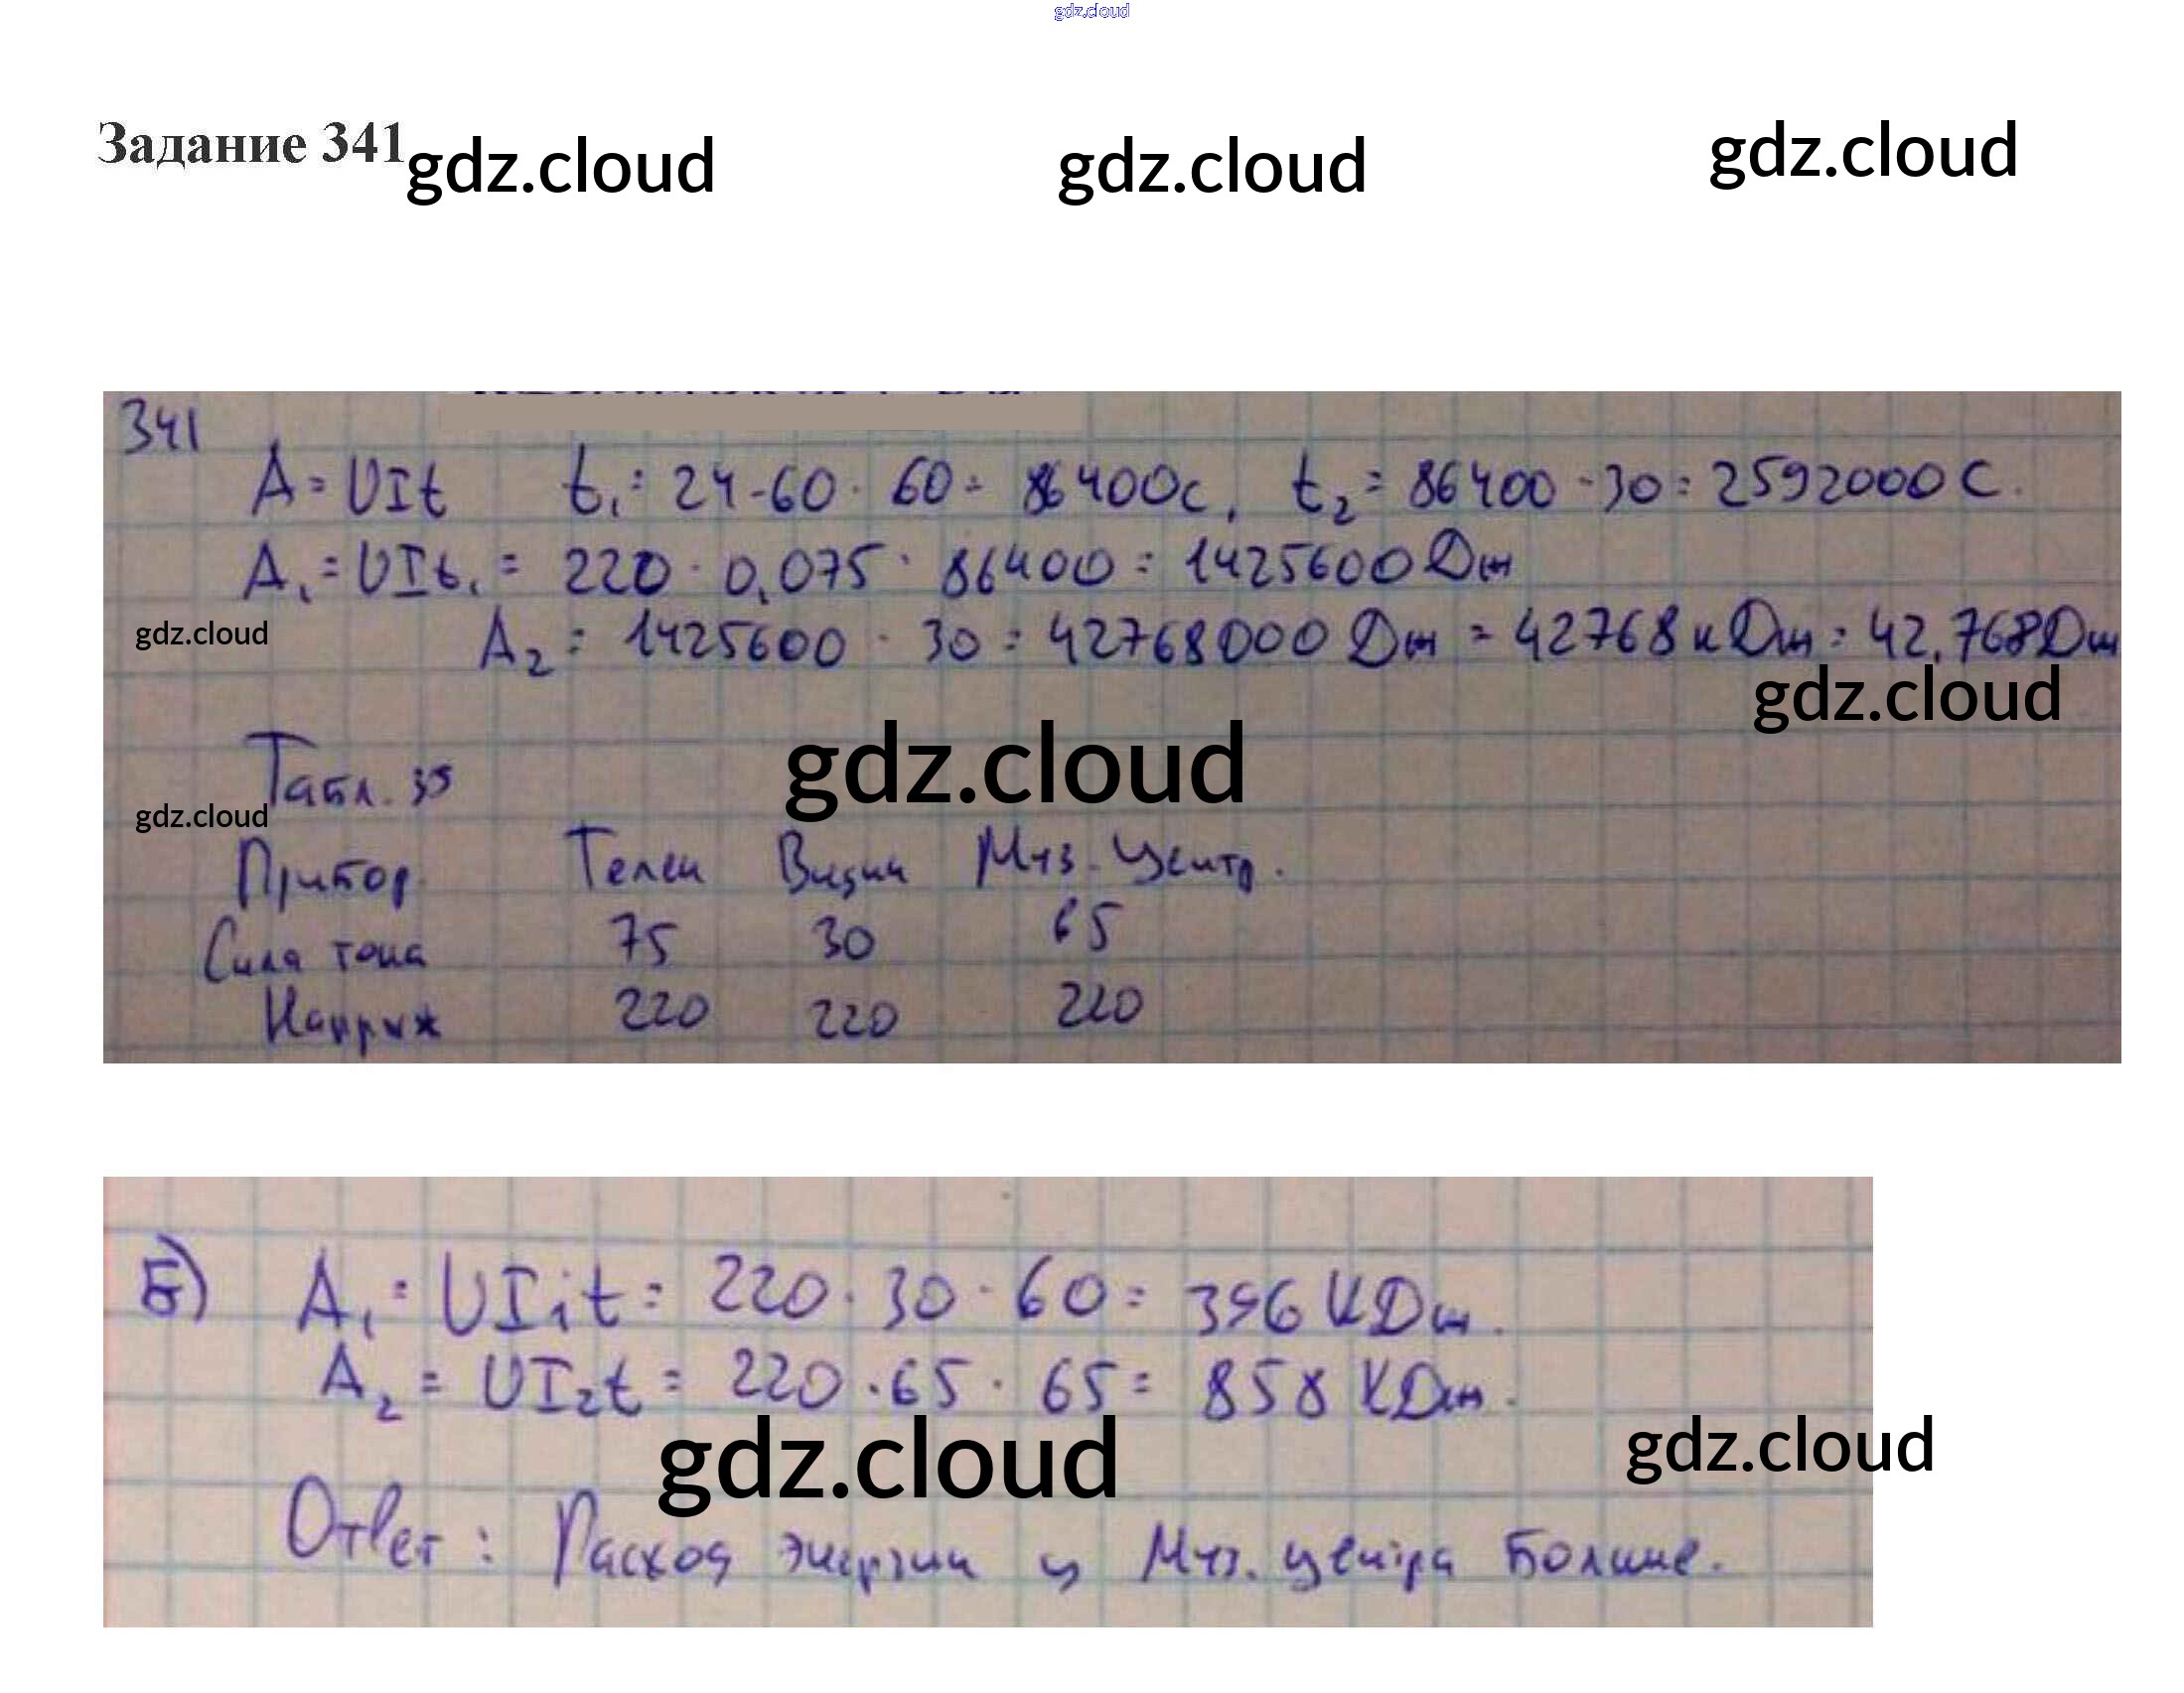 gdz.cloud
Задание 341 gdz.cloud gdz.cloud gdz.cloud
341
A = UIt t₁ = 24 · 60 · 60 = 86400с, t₂ = 86400 · 30 = 2592000 С.
A₁ = UIt₁ = 220 · 0,075 · 86400 = 1425600 Дж
gdz.cloud A₂ = 1425600 · 30 = 42768000 Дж = 42768 кДж = 42,768Дж
gdz.cloud
Табл. 39
gdz.cloud
gdz.cloud
Прибор Телеи Видии Муз. Центр.
Сила тока 75 30 65
Напряж 220 220 220
Б) A₁ = UI₁t = 220 · 30 · 60 = 396 КДж.
A₂ = UI₂t = 220 · 65 · 65 = 858 КДж.
gdz.cloud gdz.cloud
Ответ: Расход энергии у Муз. центра больше.